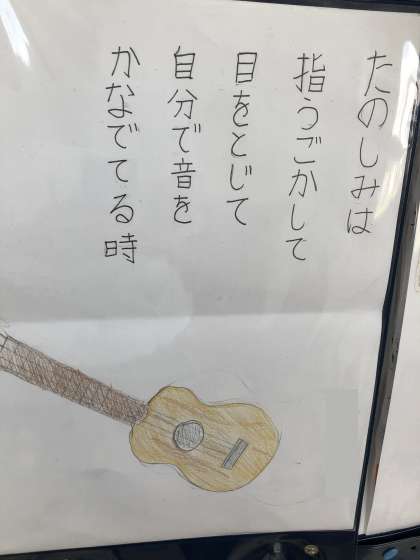 たのしみは
指うごかして
目をとじて
自分で音を
かなでてる時